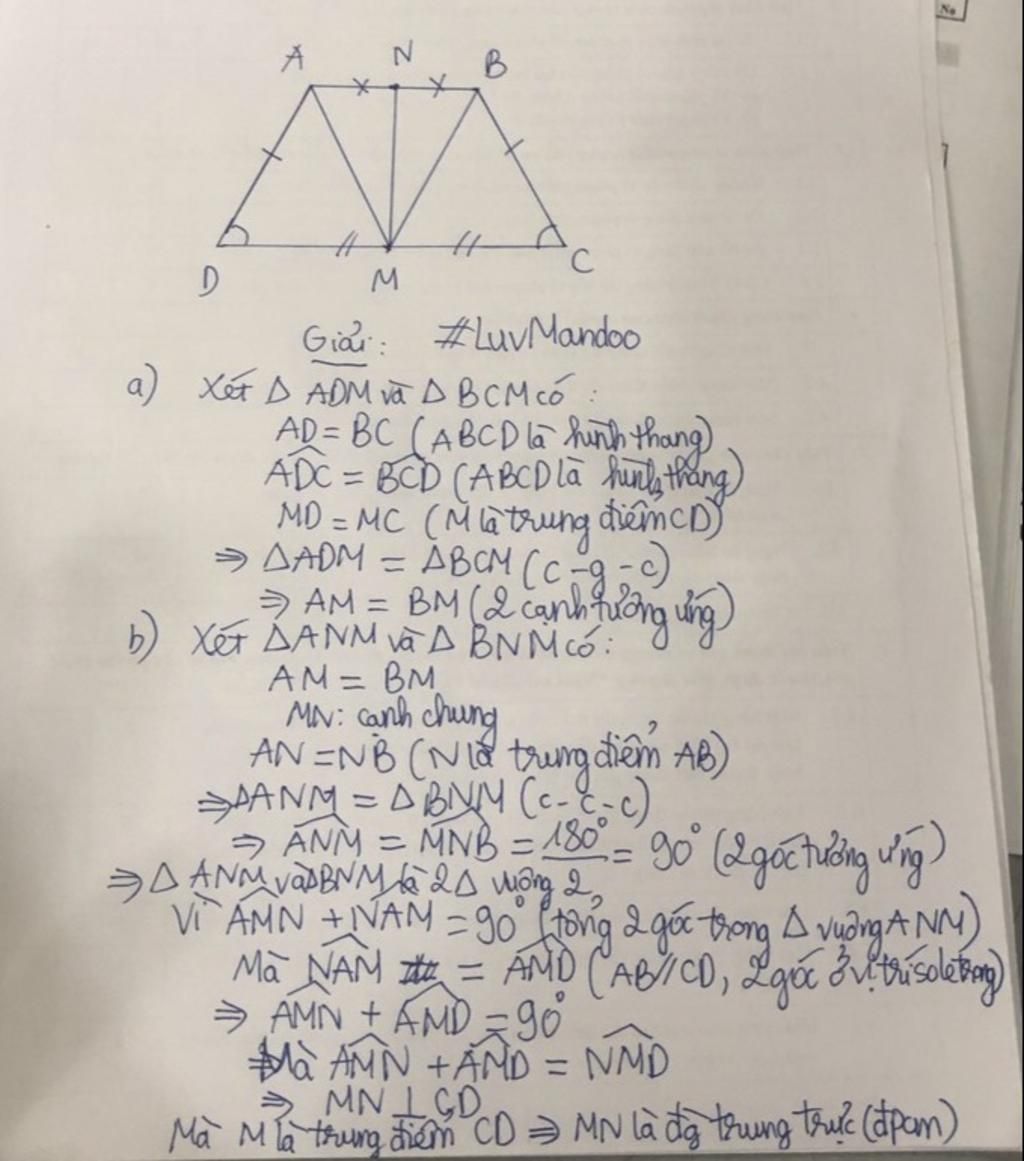 No
A N B
D M C
Giải: #LuvMandoo
a) Xét Δ ADM và Δ BCM có:
AD = BC (ABCD là hình thang)
ADC = BCD (ABCD là hình thang)
MD = MC (M là trung điểm CD)
⇒ ΔADM = ΔBCM (c-g-c)
⇒ AM = BM (2 cạnh tương ứng)
b) Xét ΔANM và Δ BNM có:
AM = BM
MN: cạnh chung
AN = NB (N là trung điểm AB)
⇒ ΔANM = Δ BNM (c-c-c)
⇒ ANM = MNB = 180° = 90° (2 góc tương ứng)
⇒ Δ ANM và ΔBNM là 2Δ vuông 2
Vì AMN + NAM = 90° (tổng 2 góc trong Δ vuông ANM)
Mà NAM = AMD (AB//CD, 2 góc ở vị trí sole trong)
⇒ AMN + AMD = 90°
Mà AMN + AMD = NMD
⇒ MN ⊥ CD
Mà M là trung điểm CD ⇒ MN là đg trung trực (đpcm)